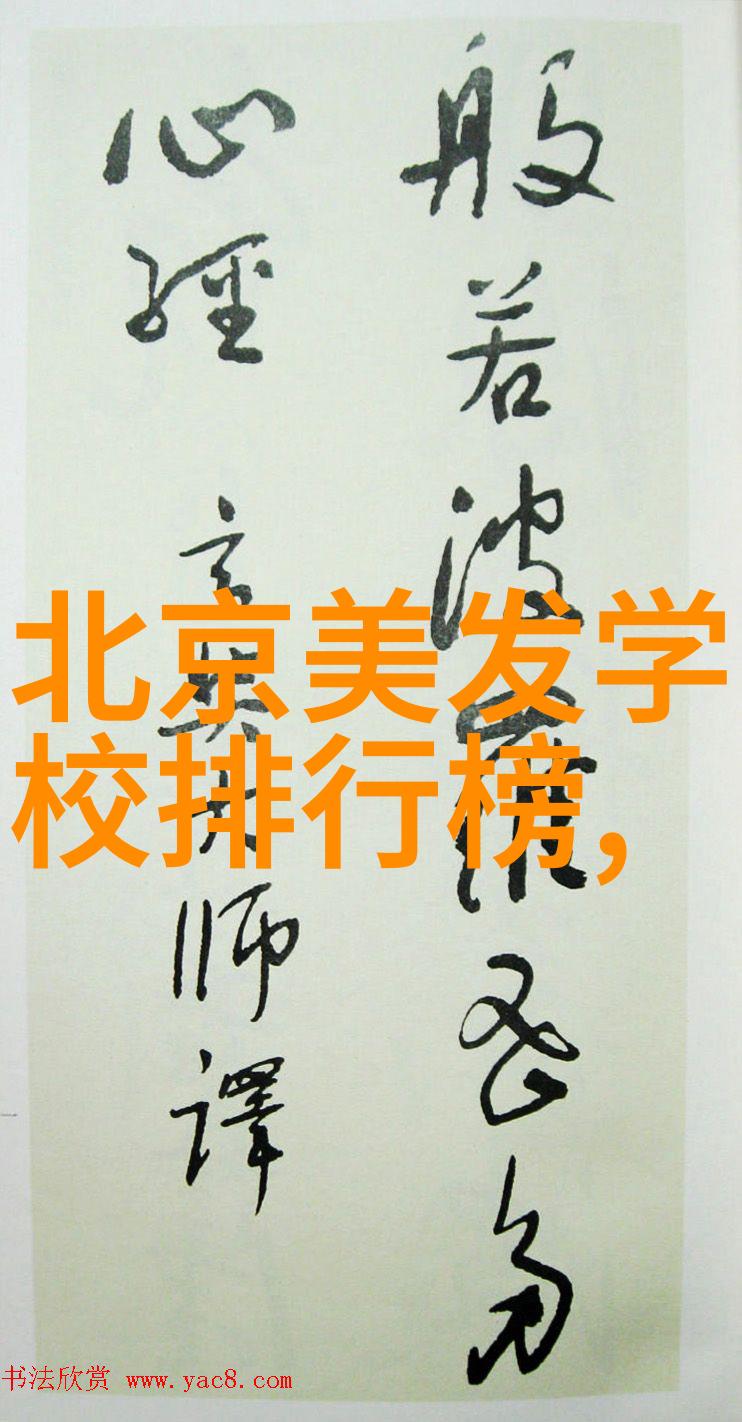 般若波羅蜜多
心經 玄奘大師譯
北京美发学
校排行榜,
书法欣赏 www.yac8.com